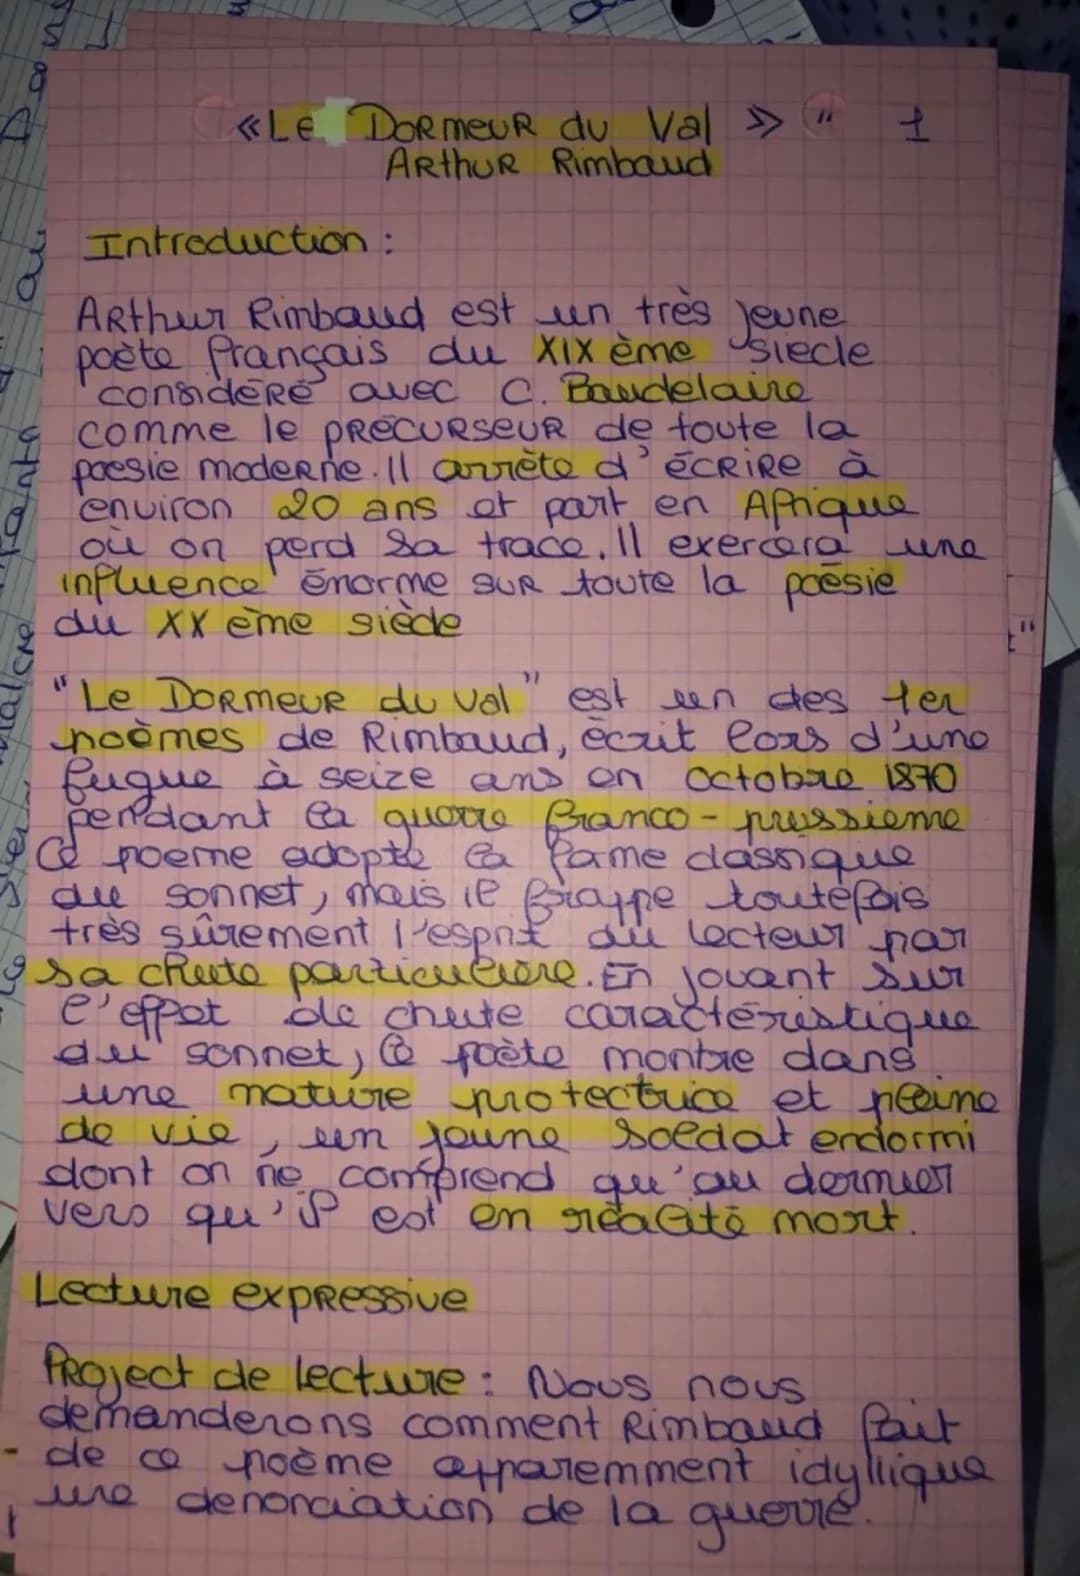 «Le Dormeur du Val » " 1
Arthur Rimbaud
Introduction :
Arthur Rimbaud est un très jeune
poète français du XIX ème siecle
considéré avec C. Baudelaire
comme le précurseur de toute la
poesie moderne. Il arrête d'écrire à
environ 20 ans et part en Afrique
où on perd sa trace. Il exercera une
influence énorme sur toute la poésie
du XX ème siècle
"Le Dormeur du val" est un des 1er
poèmes de Rimbaud, écrit lors d'une
fugue à seize ans en octobre 1870
pendant la guerre franco-prussienne
Ce poeme adopte la forme classique
du sonnet, mais il frappe toutefois
très sûrement l'esprit du lecteur par
sa chute particulière. En jouant sur
l'effet de chute caractéristique
du sonnet, le poète montre dans
une nature protectrice et pleine
de vie, un jeune soldat endormi
dont on ne comprend qu'au dernier
vers qu'il est en réalité mort.
Lecture expressive
Project de lecture : Nous nous
demanderons comment Rimbaud fait
de ce poème apparemment idyllique
une denonciation de la guerre.